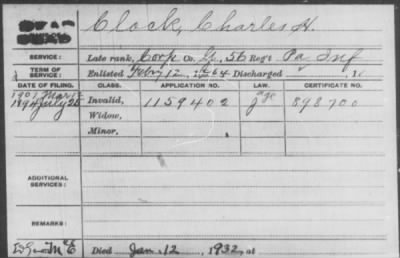 Clock, Charles H.
SERVICE: Late rank, Corp Co. G, 56 Reg't Pa Inf
TERM OF SERVICE: Enlisted Feby 12, 1864 Discharged , 1
DATE OF FILING. CLASS. APPLICATION NO. LAW. CERTIFICATE NO.
1907 Mar 12
1894 July 25 Invalid, 1159402 898700
Widow,
Minor,
ADDITIONAL SERVICES:
REMARKS:
Died Jan. 12, 1932, at